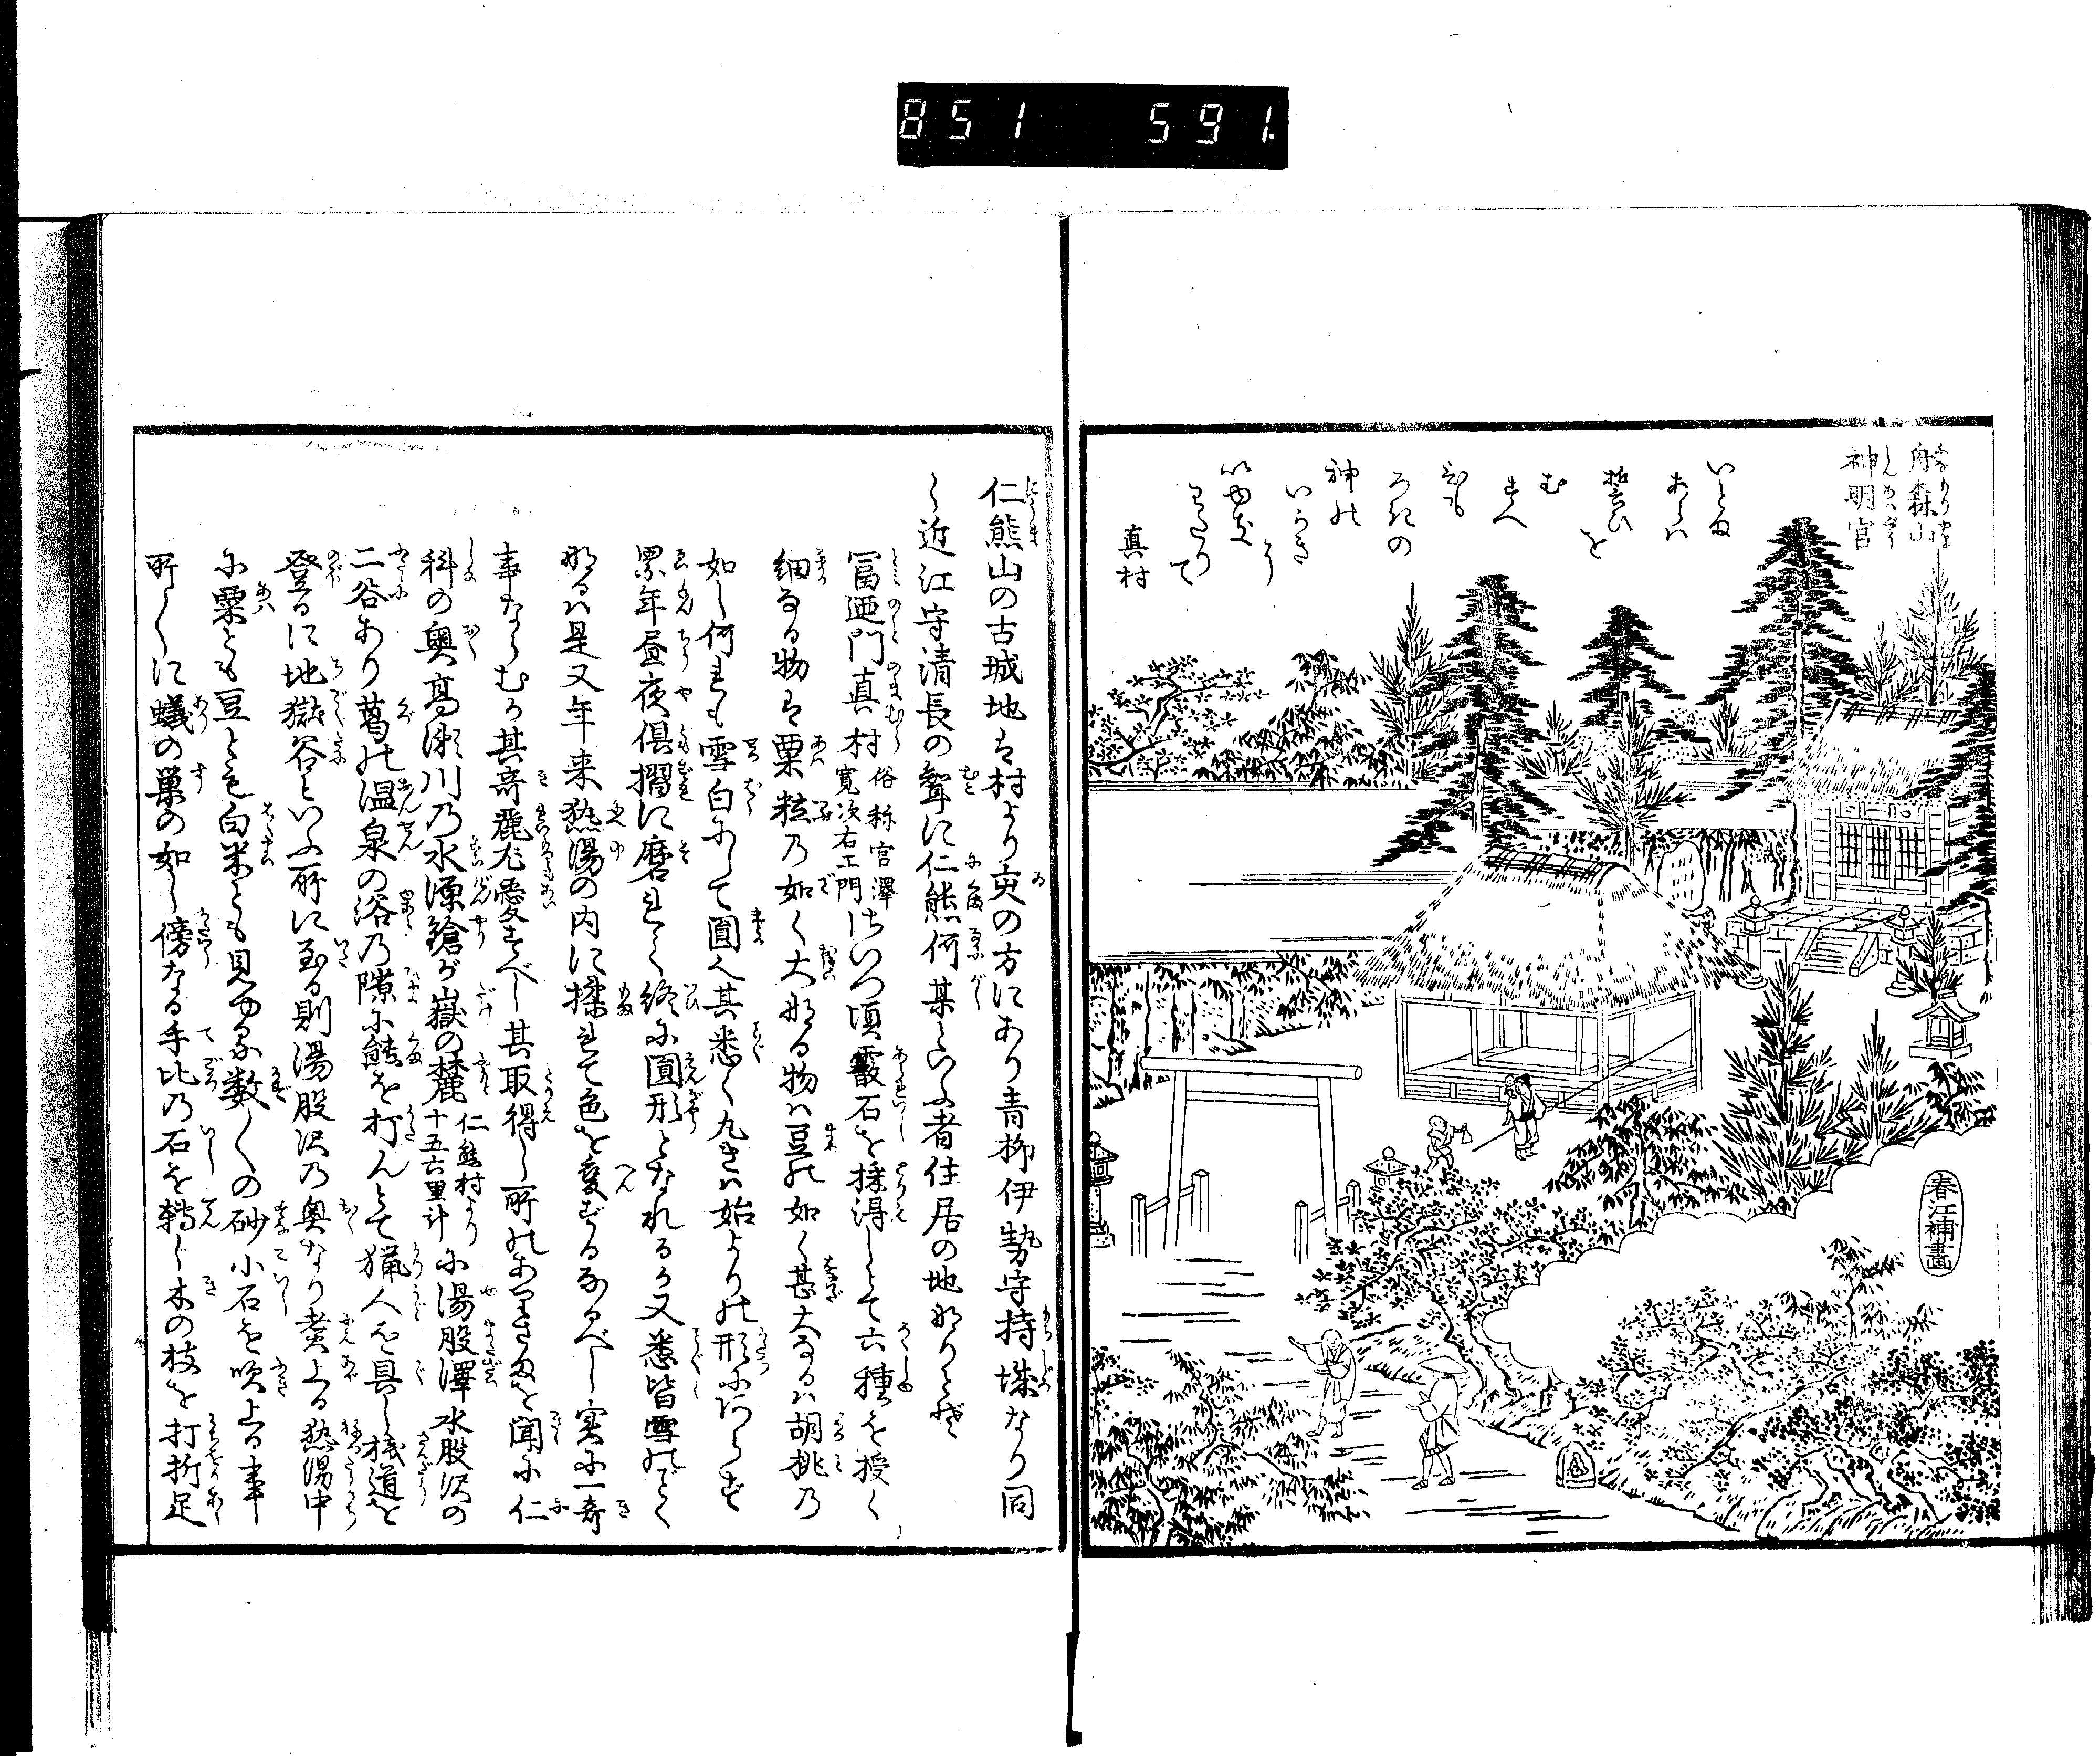 851 591.
府森山
神明宮
いとゆふ
むすへ
神の
いかき
真村
春江補畫
仁熊山の古城地は村より亥の方にあり青柳伊勢守持城なり同
し近江守清長の聟に仁熊何某といふ者住居の地なりとぞ
冨廼門真村俗称宮澤寛次右エ門はいつ頃霰石を採得しとて六種を授く
細なる物は粟粒の如く大なる物は豆の如く甚大なるは胡桃の
如し何れも雪白にして圓く其悉く丸きは始よりの形にあらず
累年昼夜倶摺に磨れて終に圓形となれるか又悉皆雪のごとく
なるは是又年来熱湯の内に揉れて色を変ずるなるべし実に一奇
事ならむか其奇麗尤愛すべし其取得し所のありさまを聞に仁
科の奥高瀬川の水源鎗が嶽の麓仁熊村より十五六里計に湯股澤水股沢の
二谷あり葛の温泉の浴の隙に熊を打んとて猟人を具し桟道を
登るに地獄谷といふ所に至る則湯股沢の奥なり煮上る熱湯中
に粟とも豆とも白米とも見ゆる数〳〵の砂小石を吹上る事
所〳〵に蟻の巣の如し傍なる手比の石を轉じ木の枝を打折足